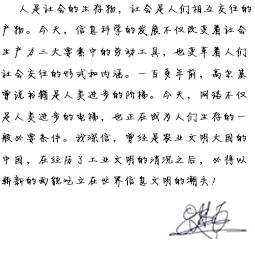 人是社会的生存物，社会是人们相互交往的
产物。今天，信息科学的发展不仅改变着社会
生产力三大要素中的劳动工具，也变革着人们
社会交往的形式和内涵。一百多年前，高尔基
曾说书籍是人类进步的阶梯。今天，网络不仅
是人类进步的电梯，也正在成为人们生存的一
般必要条件。我深信，曾经是农业文明大国的
中国，在经历了工业文明的清洗之后，必将以
崭新的面貌屹立在世界信息文明的潮头！